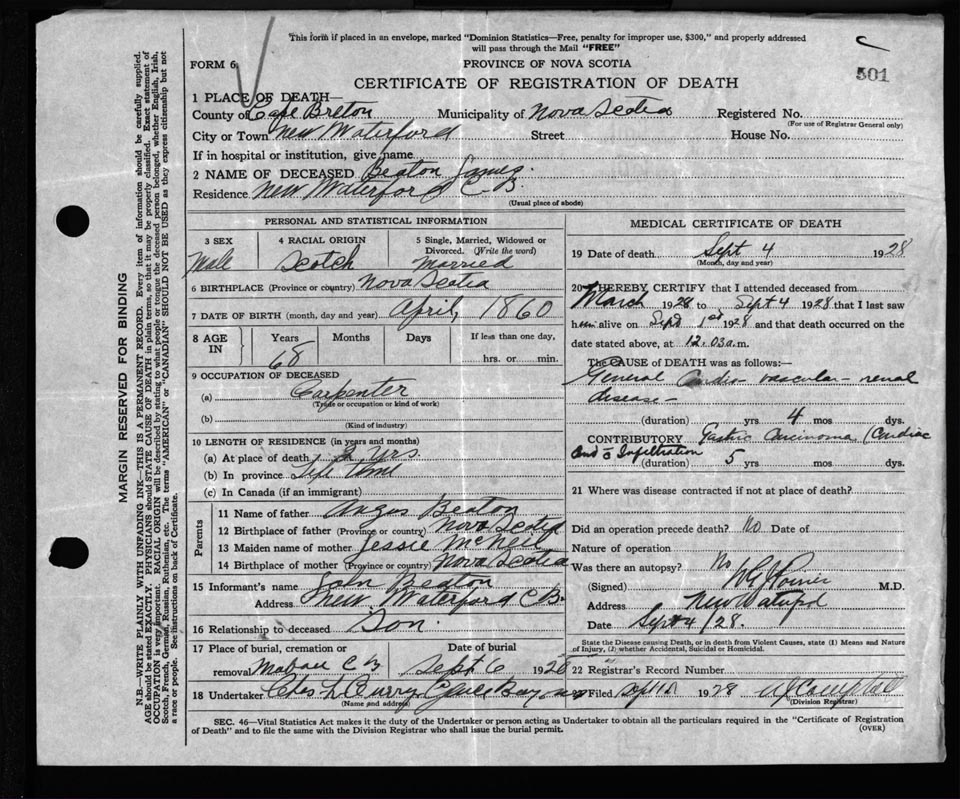 This form if placed in an envelope, marked "Dominion Statistics—Free, penalty for improper use, $300," and properly addressed
will pass through the Mail "FREE"
FORM 6
PROVINCE OF NOVA SCOTIA
501
CERTIFICATE OF REGISTRATION OF DEATH
1 PLACE OF DEATH—
County of Cape Breton Municipality of Nova Scotia Registered No.
(For use of Registrar General only)
City or Town New Waterford Street House No.
If in hospital or institution, give name
2 NAME OF DECEASED Beaton James.
Residence New Waterford C.B.
(Usual place of abode)
PERSONAL AND STATISTICAL INFORMATION
3 SEX 4 RACIAL ORIGIN 5 Single, Married, Widowed or Divorced. (Write the word)
Male Scotch Married
6 BIRTHPLACE (Province or country) Nova Scotia
7 DATE OF BIRTH (month, day and year) April, 1860
8 AGE IN Years Months Days If less than one day,
68 hrs. or min.
9 OCCUPATION OF DECEASED
(a) Carpenter
(Trade or occupation or kind of work)
(b)
(Kind of industry)
10 LENGTH OF RESIDENCE (in years and months)
(a) At place of death 2 yrs
(b) In province Life time
(c) In Canada (if an immigrant)
Parents
11 Name of father Angus Beaton
12 Birthplace of father (Province or country) Nova Scotia
13 Maiden name of mother Jessie McNeil
14 Birthplace of mother (Province or country) Nova Scotia
15 Informant's name John Beaton
Address New Waterford C B.
16 Relationship to deceased Son.
17 Place of burial, cremation or removal Mabou C B Date of burial Sept 6 1928
18 Undertaker Chas L Curry Glace Bay
(Name and address)
MEDICAL CERTIFICATE OF DEATH
19 Date of death Sept 4 1928
(Month, day and year)
20 I HEREBY CERTIFY that I attended deceased from
March 1928 to Sept 4 1928 that I last saw
him alive on Sept 1st 1928 and that death occurred on the
date stated above, at 12.03 a.m.
The CAUSE OF DEATH was as follows:—
General Cardio vascular-renal
disease -
(duration) yrs 4 mos dys.
CONTRIBUTORY Gastric Carcinoma (Cardiac
End c̄ Infiltration
(duration) 5 yrs mos dys.
21 Where was disease contracted if not at place of death?
Did an operation precede death? No Date of
Nature of operation
Was there an autopsy? No
(Signed) M.D.
Address New Waterford
Date Sept 4/28.
State the Disease causing Death, or in death from Violent Causes, state (1) Means and Nature
of Injury, (2) whether Accidental, Suicidal or Homicidal.
22 Registrar's Record Number
Filed 1928
(Division Registrar)
SEC. 46—Vital Statistics Act makes it the duty of the Undertaker or person acting as Undertaker to obtain all the particulars required in the "Certificate of Registration
of Death" and to file the same with the Division Registrar who shall issue the burial permit.
(OVER)
MARGIN RESERVED FOR BINDING
N.B.—WRITE PLAINLY WITH UNFADING INK—THIS IS A PERMANENT RECORD. Every item of information should be carefully supplied.
AGE should be stated EXACTLY. PHYSICIANS should STATE CAUSE OF DEATH in plain terms, so that it may be properly classified. Exact statement of
OCCUPATION is very important. RACIAL ORIGIN will be described by stating to what people or tongue the deceased person belonged, whether English, Irish,
Scotch, French, German, Russian, Ruthenian, etc. The terms "AMERICAN" or "CANADIAN" SHOULD NOT BE USED as they express citizenship but not
a race or people. See instructions on back of Certificate.